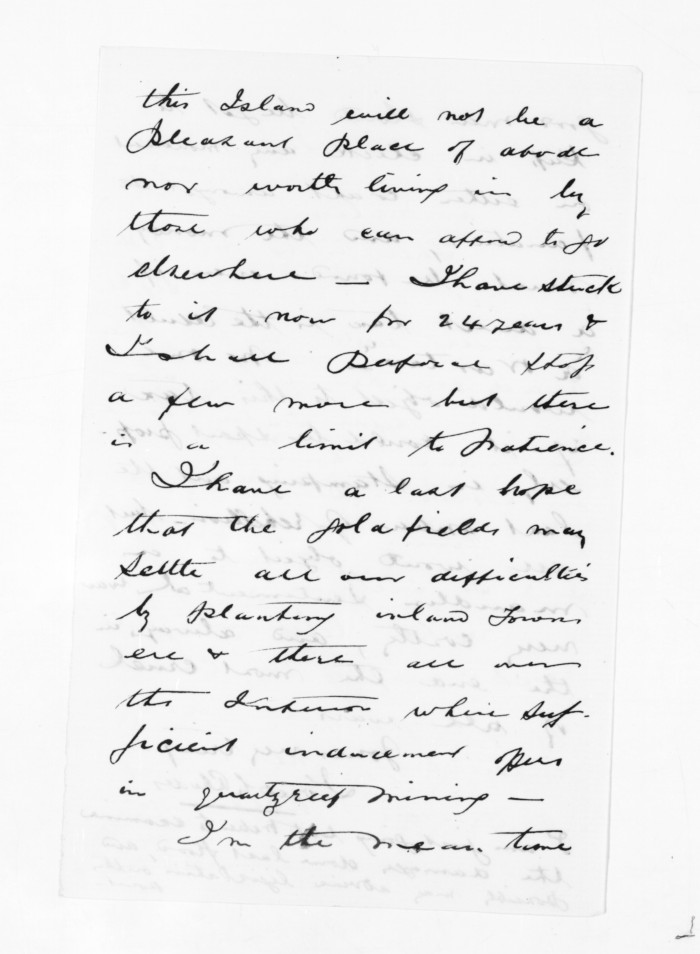 this Island will not be a
pleasant place of abode
nor worth living in by
those who can afford to go
elsewhere — I have stuck
to it now for 24 years &
I shall perforce stop
a few more but there
is a limit to patience.
I have a last hope
that the goldfields may
settle all our difficulties
by planting inland Towns
here & there all over
the Interior where suf-
ficient inducement offers
in quartzreef mining —
In the mean time